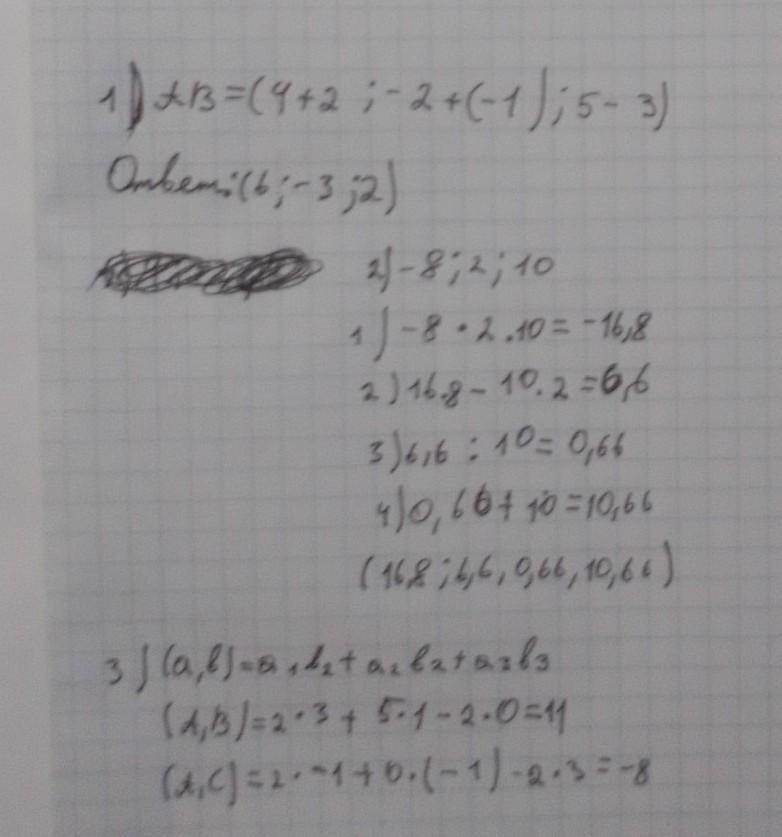 1) AB=(4+2 ; -2+(-1) ; 5-3)
Ответ:(6 ; -3 ; 2)
2) -8 ; 2 ; 10
1) -8 · 2.10 = -16,8
2) 16.8 - 10.2 = 6,6
3) 6,6 : 10 = 0,66
4) 0,66 + 10 = 10,66
(16,8 ; 6,6 , 0,66 , 10,66)
3) (a,b)=a₁b₂+a₂b₂+a₃b₃
(A,B)=2·3 + 5·1 - 2·0=11
(A,C)=2·-1+0·(-1) - 2·3 = -8